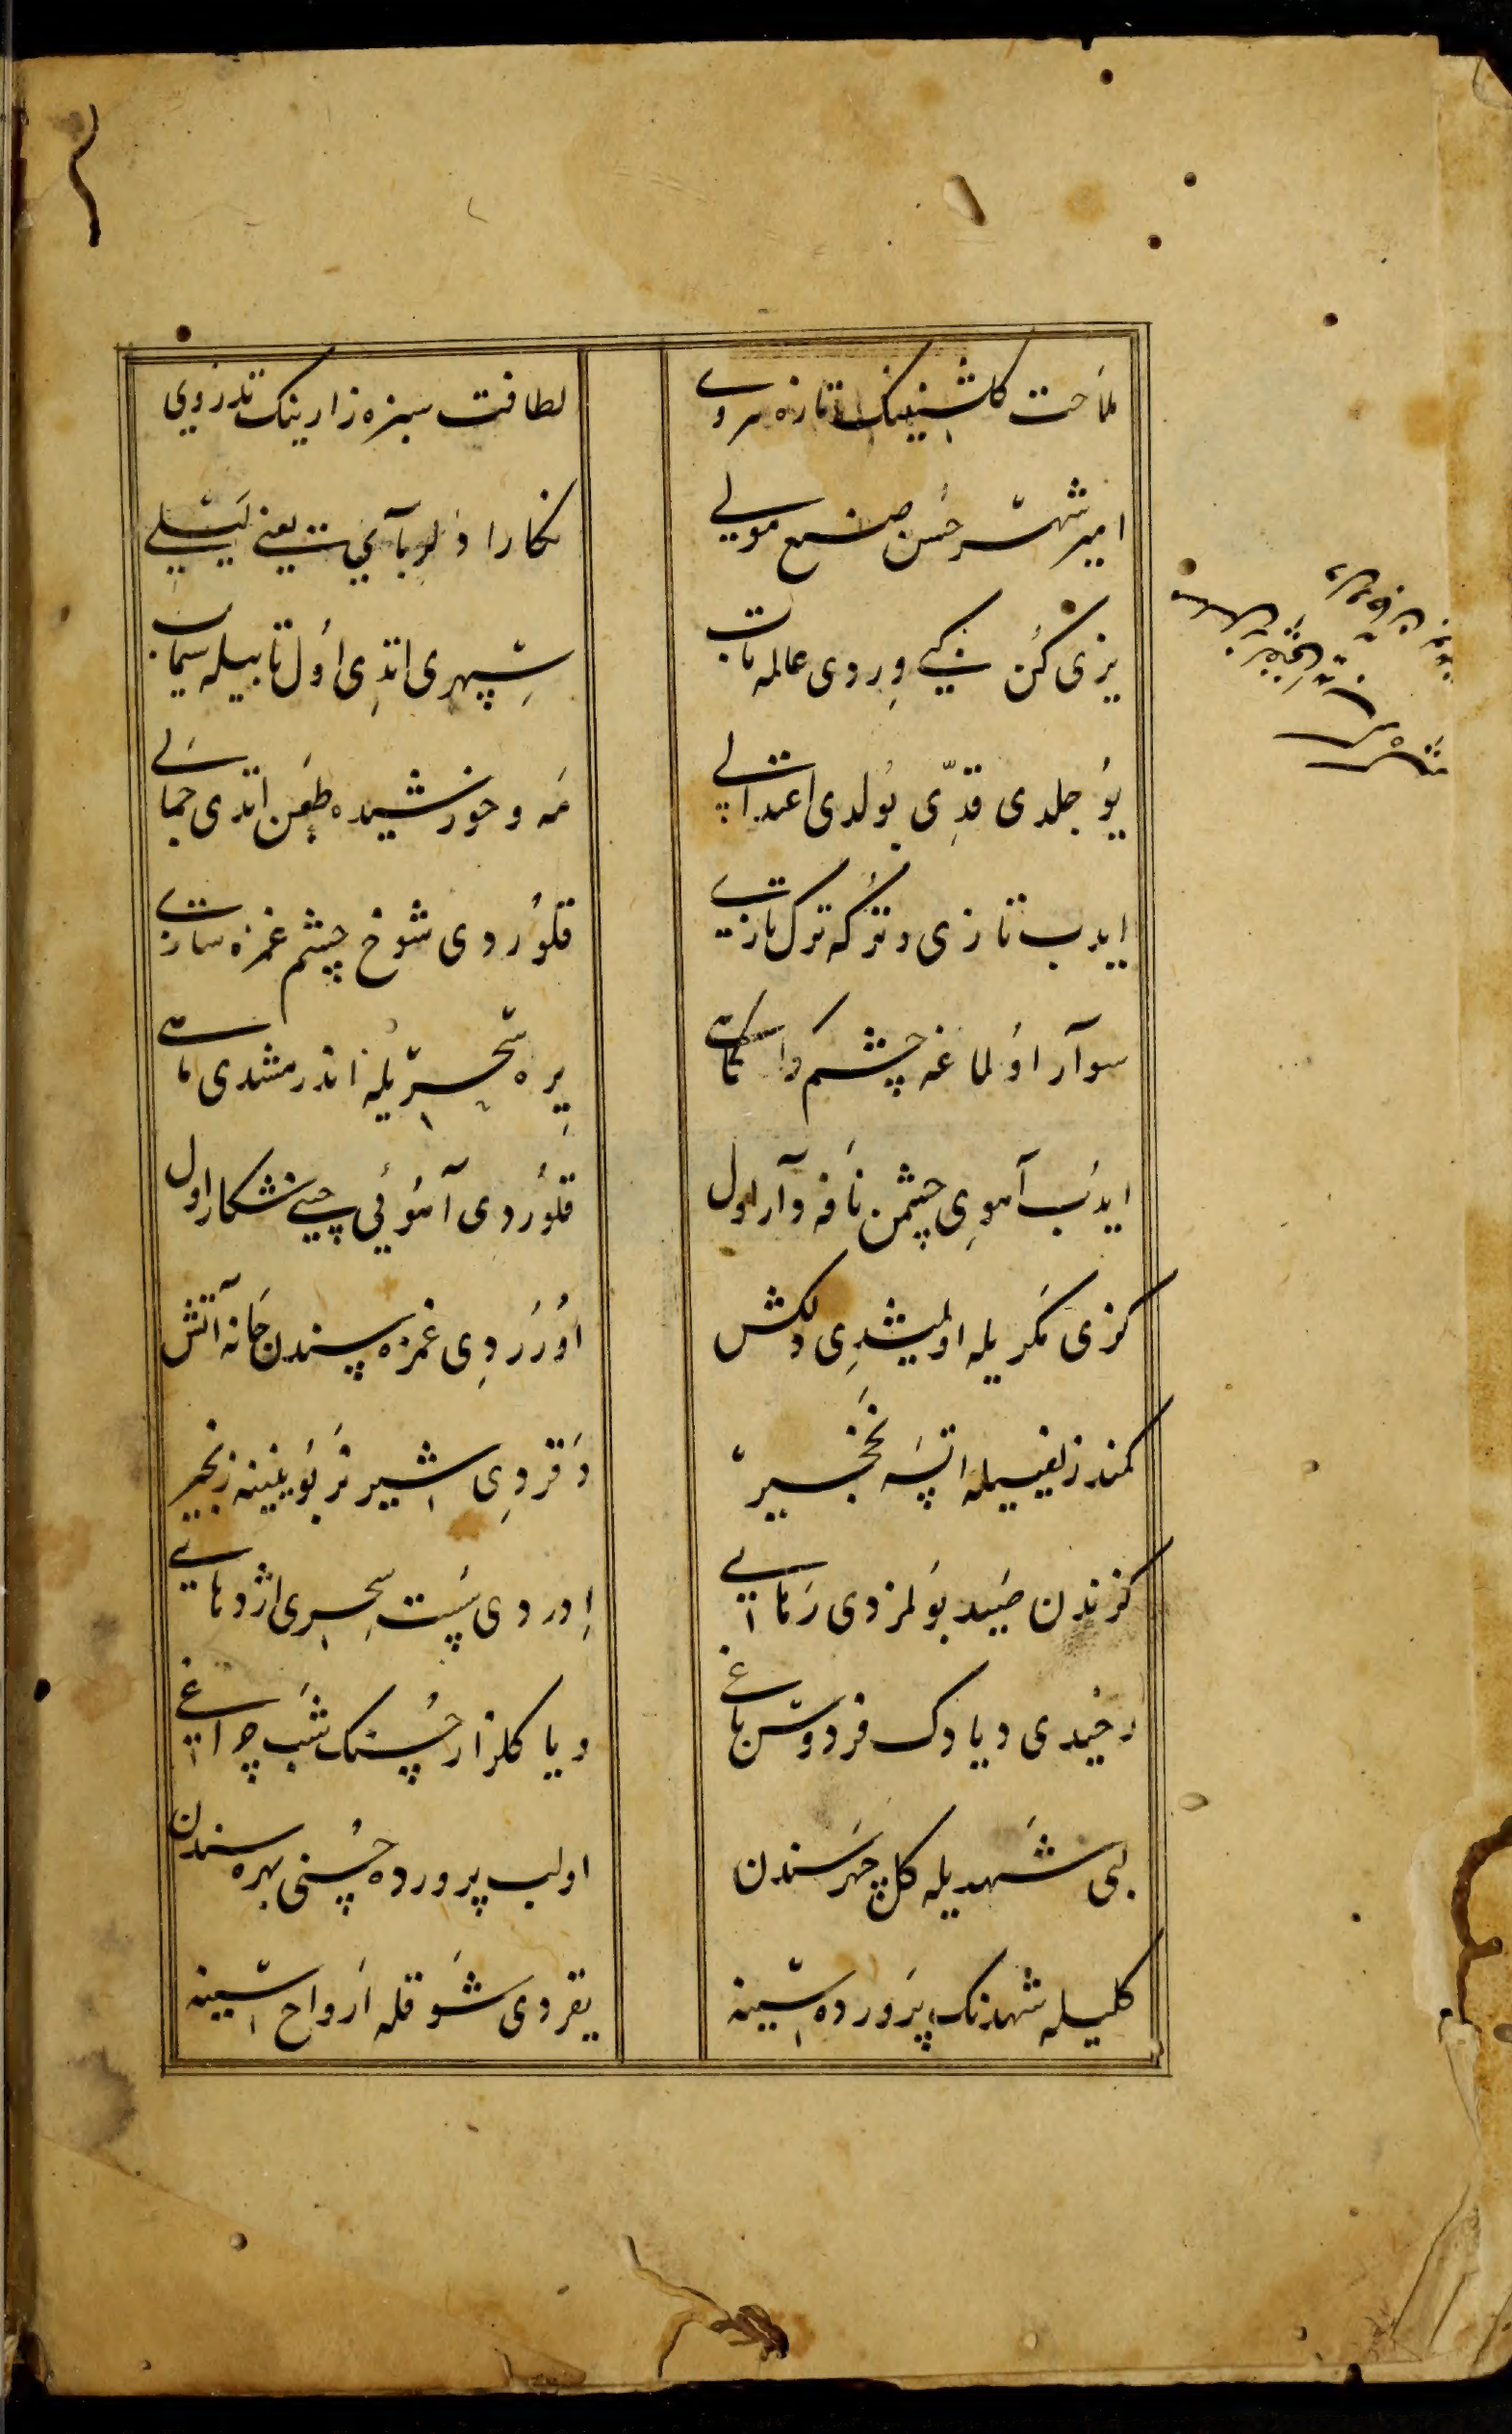 ملاحت كلشنینك تازه سروی
لطافت سبزه زارینك تذرویی
امیر شهر حسن صنع مولی
نكارا دلربا آیت یعنی لیلی
یزی كن كبی ویردی عالمه تاب
سپهری اتدی اول تابیله سیماب
یوجلدی قدّی بولدی اعتدالی
مه و خورشیده طعن اتدی جمالی
ایدب تازی و تركه ترك تازی
قلوردی شوخ چشم غمزه سازی
سوآر اولماغه چشم
یره سحریله اندرمشدی ماهی
ایدب آهوی چشمن نافه وآر اول
قلوردی آهویی چین شكار اول
كزی مكریله اولمیشدی دلكش
اوررردی غمزه سندن جانه آتش
كمند زلفیله اتسه نخجیر
دقردی شیر نر بوینینه زنجیر
كزندن صید بولمزدی رهایی
اوردی سحری اژدهایی
رخیدی دیادك فردوس باغی
ویا كلزار حسنك شب چراغی
لبی شهدیله كل چهرسندن
اولب پرورده حسنی بهره سندن
كلیله شهدنك پرورده سینه
یقردی شوقله ارواح سینه